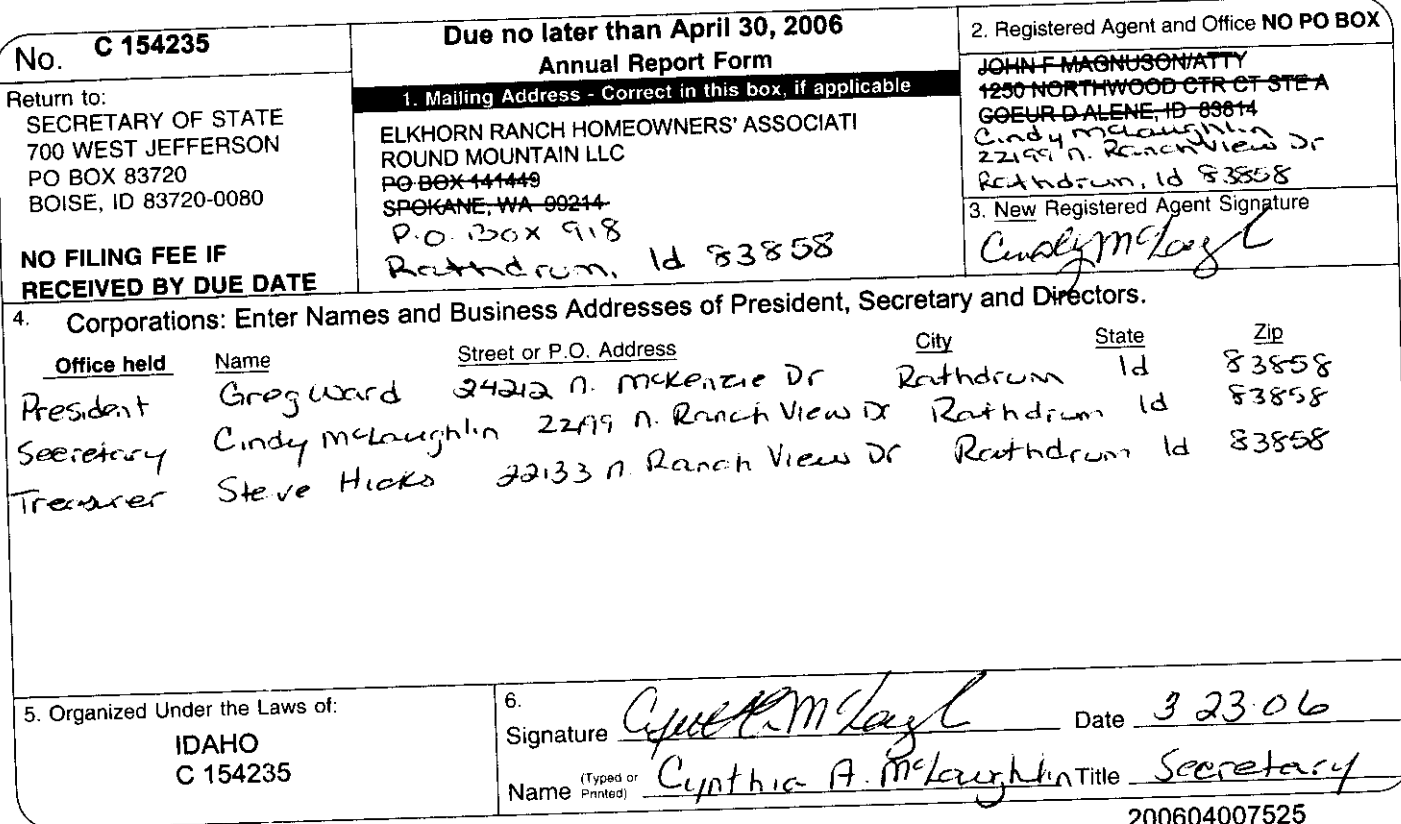 No. C 154235
Return to:
SECRETARY OF STATE
700 WEST JEFFERSON
PO BOX 83720
BOISE, ID 83720-0080
NO FILING FEE IF
RECEIVED BY DUE DATE
Due no later than April 30, 2006
Annual Report Form
1. Mailing Address - Correct in this box, if applicable
ELKHORN RANCH HOMEOWNERS' ASSOCIATI
ROUND MOUNTAIN LLC
PO BOX 141449
SPOKANE, WA 99214
P.O. Box 918
Rathdrum, Id 83858
2. Registered Agent and Office NO PO BOX
JOHN F MAGNUSON/ATTY
1250 NORTHWOOD CTR CT STE A
COEUR D ALENE, ID 83814
Cindy McLaughlin
22199 N. Ranch View Dr
Rathdrum, Id 83858
3. New Registered Agent Signature
4. Corporations: Enter Names and Business Addresses of President, Secretary and Directors.
Office held Name Street or P.O. Address City State Zip
President Greg Ward 24212 N. McKenzie Dr Rathdrum Id 83858
Secretary Cindy McLaughlin 22199 N. Ranch View Dr Rathdrum Id 83858
Treasurer Steve Hicks 22133 N. Ranch View Dr Rathdrum Id 83858
5. Organized Under the Laws of:
IDAHO
C 154235
6.
Signature Date 3 23 06
Name (Typed or Printed) Cynthia A. McLaughlin Title Secretary
200604007525